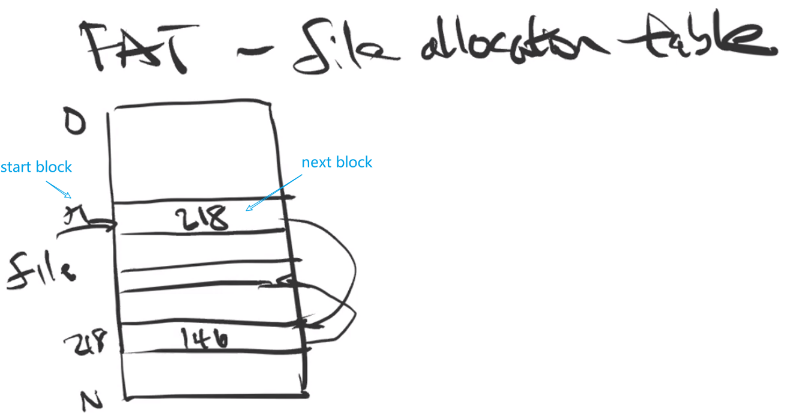 FAT - file allocation table
0
start block
next block
218
file
218 146
N